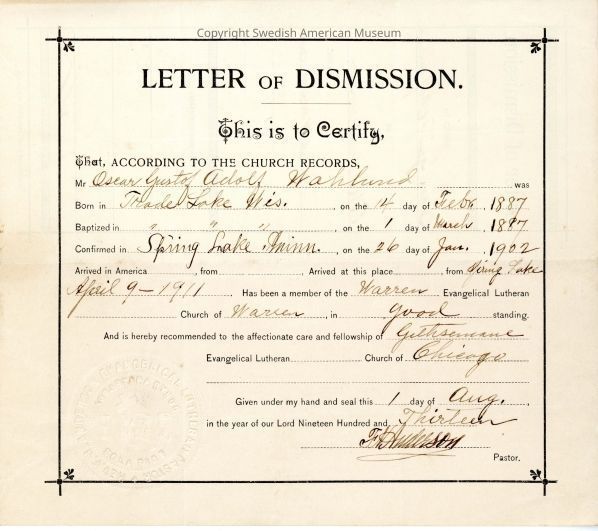 Copyright Swedish American Museum
LETTER OF DISMISSION.
This is to Certify,
That, ACCORDING TO THE CHURCH RECORDS,
Mr Oscar Gustof Adolf Wahlund was
Born in Trade Lake Wis. on the 14 day of Febr. 1887
Baptized in " " " on the 1 day of March 1887
Confirmed in Spring Lake Minn. on the 26 day of Jan. 1902
Arrived in America , from Arrived at this place from Spring Lake
April 9 - 1911 Has been a member of the Warren Evangelical Lutheran
Church of Warren , in good standing.
And is hereby recommended to the affectionate care and fellowship of Gethsemane
Evangelical Lutheran Church of Chicago
Given under my hand and seal this 1 day of Aug.
in the year of our Lord Nineteen Hundred and Thirteen
Pastor.